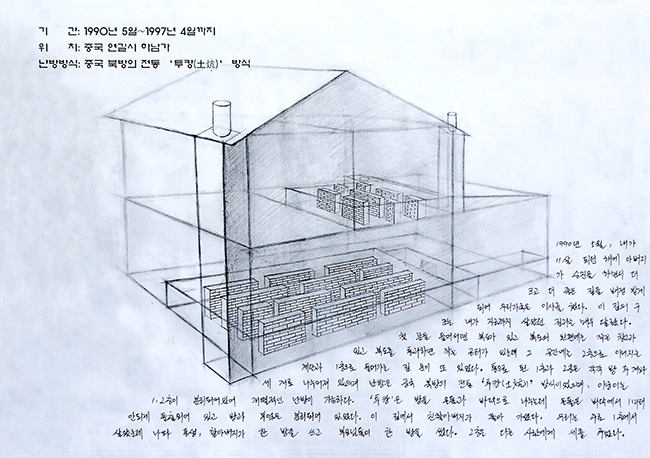 기    간: 1990년 5월~1997년 4월까지
위    치: 중국 연길시 하남가
난방방식: 중국 북방의 전통 '투캉(土炕)' 방식
1990년 5월, 내가
11살 되던 해에 아버지
가 승진을 하면서 더
크고 더 좋은 집을 배정 받게
되어 우리가족은 이사를 했다. 이 집의 구
조는 내가 지금까지 살았던 집과는 매우 달랐다.
첫 문을 들어서면 복도가 있고 복도의 왼편에는 작은 창고가
있고 복도를 통과하면 작은 공터가 있는데 그 공간에는 2층으로 이어지는
계단과 1층으로 들어가는 집 문이 또 있었다. 통으로 된 1층과 2층은 각각 방 두개와
세 개로 나누어져 있으며 난방은 중국 북방의 전통 '투캉(土炕)' 방식이었으며, 아궁이는
1, 2층이 분리되어있어 개별적인 난방이 가능하다. '투캉'은 방을 온돌과 바닥으로 나누는데 온돌은 바닥에서 1미터
안되게 돌출되어 있고 방과 부엌은 분리되어 있었다. 이 집에서 친할아버지가 돌아 가셨다. 우리는 주로 1층에서
살았는데 나와 동생, 할아버지가 한 방을 쓰고 부모님들이 한 방을 썼다. 2층은 다른 사람에게 세를 주었다.